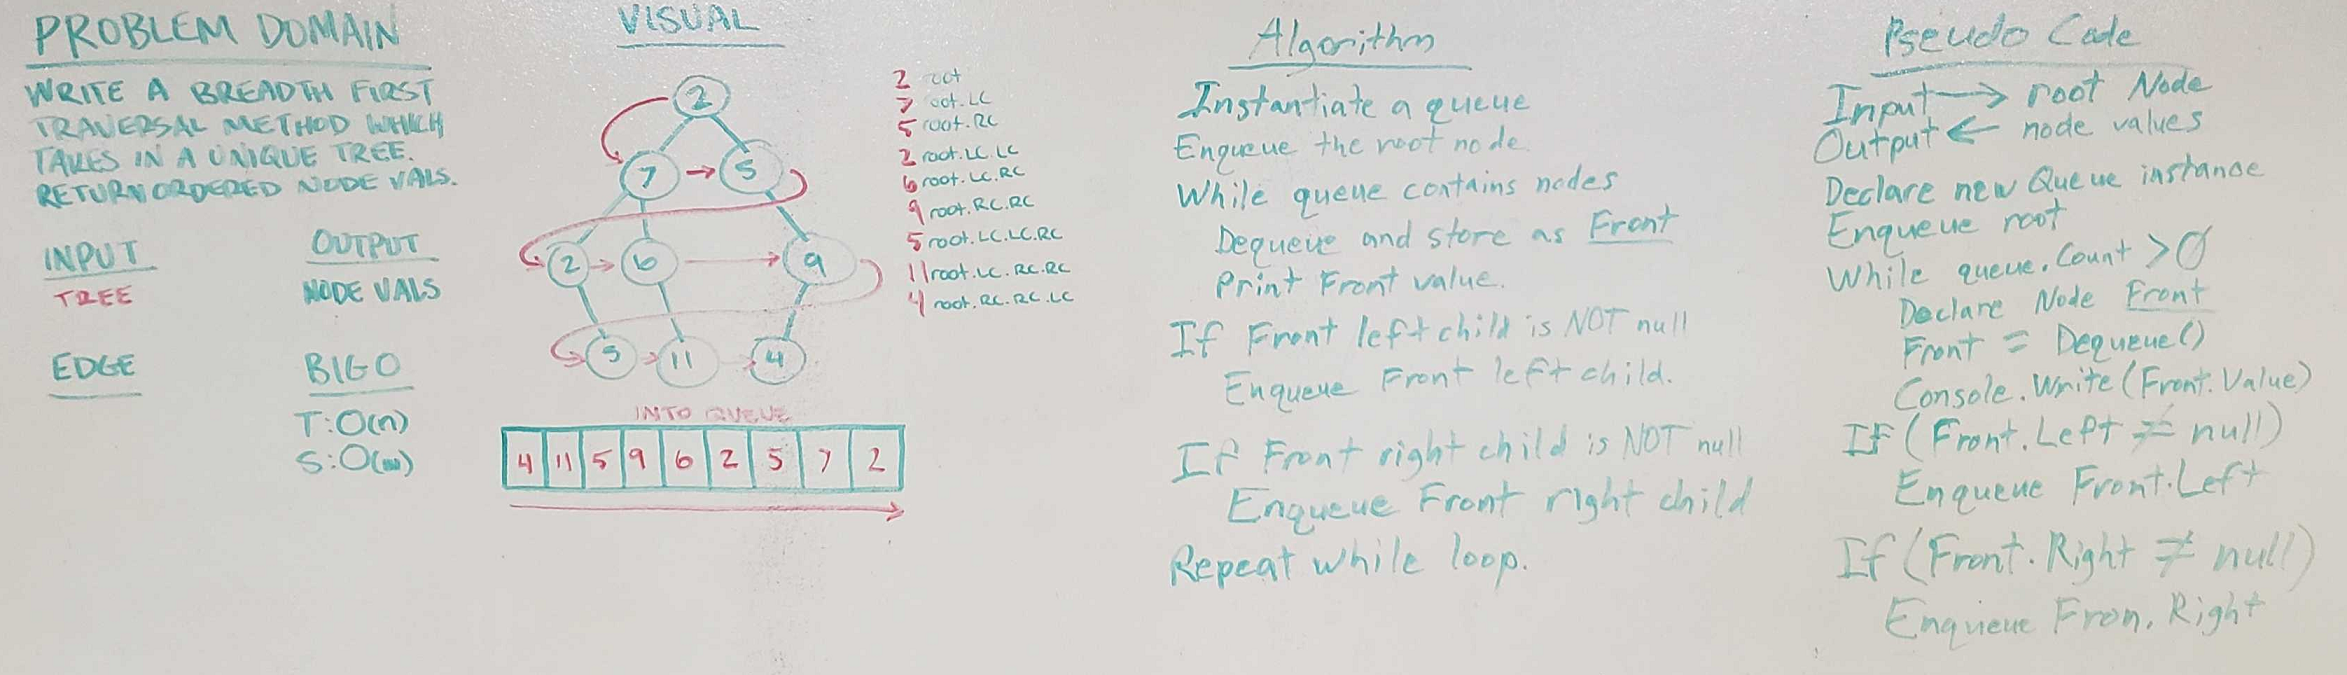 PROBLEM DOMAIN
WRITE A BREADTH FIRST
TRAVERSAL METHOD WHICH
TAKES IN A UNIQUE TREE.
RETURN ORDERED NODE VALS.
INPUT
TREE
OUTPUT
NODE VALS
EDGE
BIG O
T:O(n)
S:O(w)
VISUAL
2
7 5
2 6 9
5 11 4
INTO QUEUE
4 11 5 9 6 2 5 7 2
2 root
7 root.LC
5 root.RC
2 root.LC.LC
6 root.LC.RC
9 root.RC.RC
5 root.LC.LC.RC
11 root.LC.RC.RC
4 root.RC.RC.LC
Algorithm
Instantiate a queue
Enqueue the root node.
While queue contains nodes
Dequeue and store as Front
Print Front value.
If Front left child is NOT null
Enqueue Front left child.
If Front right child is NOT null
Enqueue Front right child
Repeat while loop.
Pseudo Code
Input → root Node
Output ← node values
Declare new Queue instance
Enqueue root
While queue.Count > 0
Declare Node Front
Front = Dequeue()
Console.Write(Front.Value)
If (Front.Left ≠ null)
Enqueue Front.Left
If (Front.Right ≠ null)
Enqueue Fron.Right